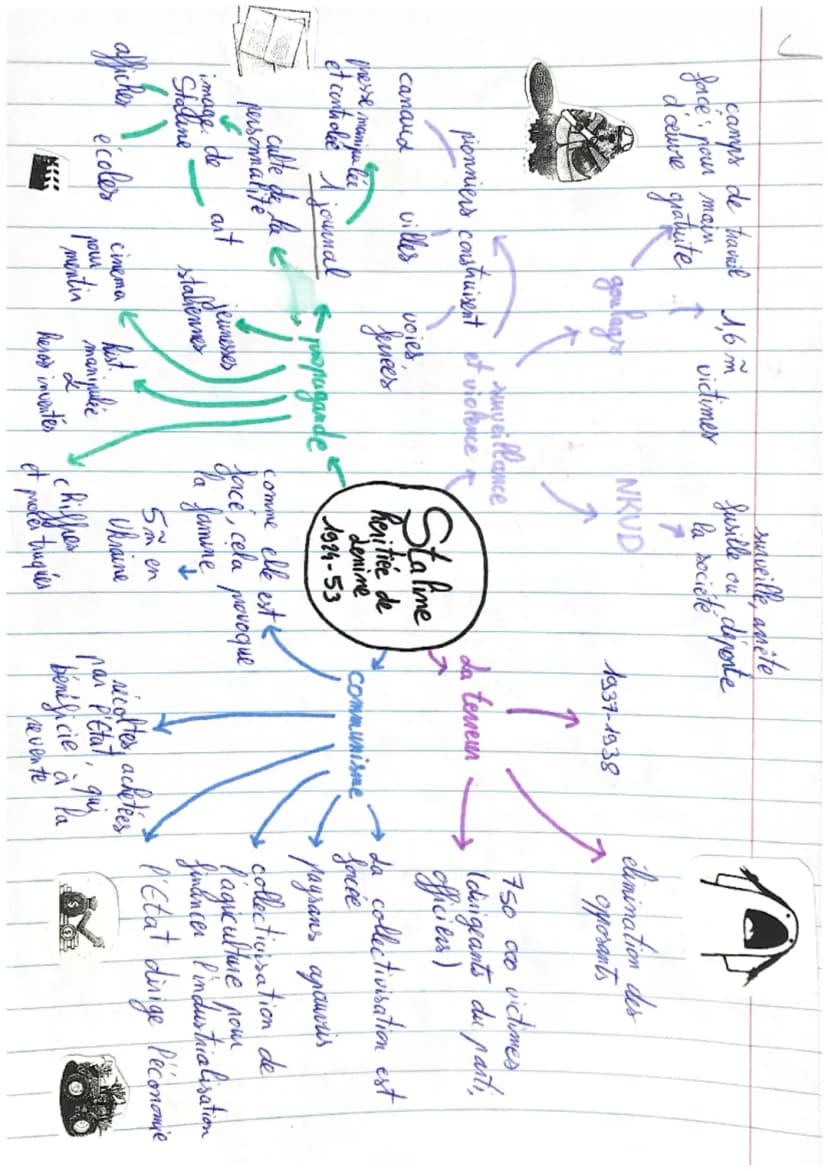 Staline
héritiée de
Lenine
1924-53
surveillance
et violence
goulags
camps de travail
forcé, pour main
d'œuvre gratuite
1,6 m̃
victimes
NKVD
surveille, arrête
fusille ou déporte
la société
pionniers construisent
canaux
villes
voies
ferrées
La terreur
1937-1938
élimination des
opposants
750 000 victimes
(dirigeants du parti,
officiers)
propagande
1 journal
presse manipulée
et controlée
culte de la
personnalité
image de
Staline
affiches
écoles
art
jeunesses
staliennes
cinema
pour
mentir
hist.
manipulée
heros inventés
chiffres
et photos truqués
communisme
La collectivisation est
forcée
paysans apauvris
collectivisation de
l'agriculture pour
financer l'industrialisation
l'Etat dirige l'économie
récoltes achetées
par l'Etat, qui
bénéficie à la
revente
comme elle est
forcé, cela provoque
la famine
5 m̃ en
Ukraine